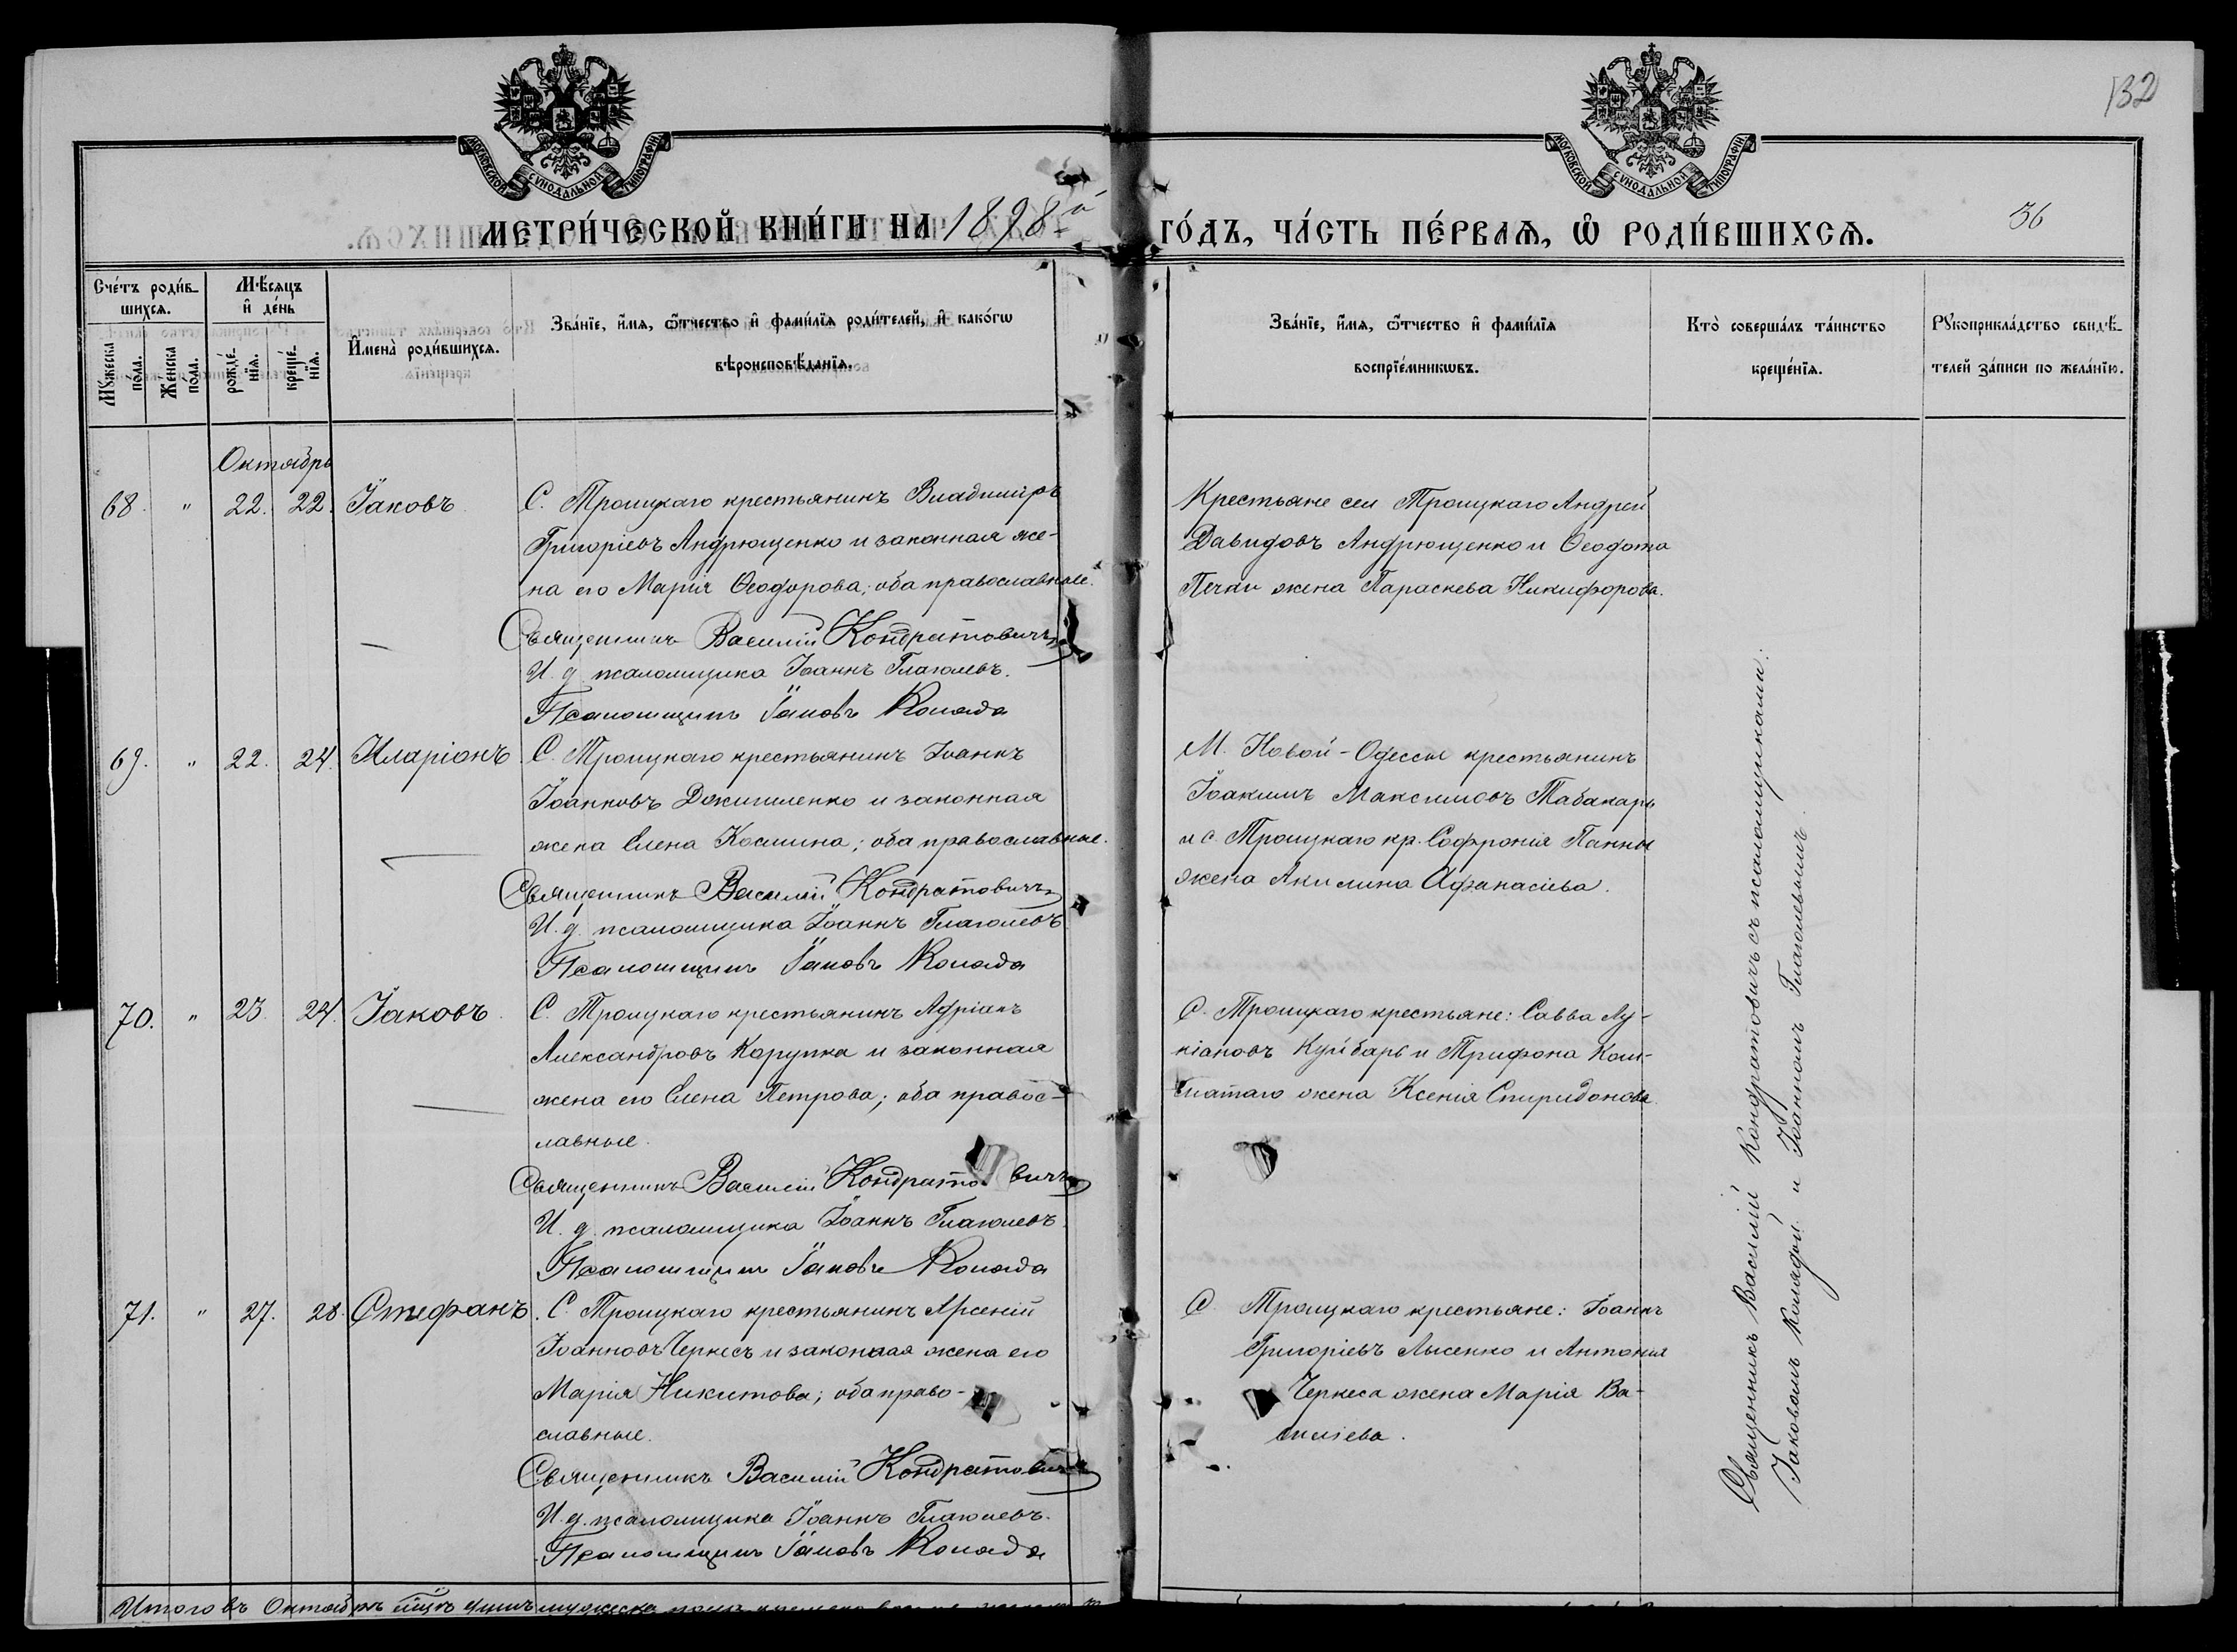 132
МОСКОВСКОЙ СѴНОДАЛЬНОЙ ТИПОГРАФІИ
МОСКОВСКОЙ СѴНОДАЛЬНОЙ ТИПОГРАФІИ
МЕТРИ́ЧЕСКОЙ КНИ́ГИ НА 1898й ГО́ДЪ, ЧА́СТЬ ПЕ́РВАѦ, Ѡ҆ РОДИ́ВШИХСѦ.
36
Сче́тъ роди́в-
шихсѧ.
Мꙋ́жеска
по́ла.
Же́нска
по́ла.
Мѣ́сѧцъ
и҆ де́нь
рожде́-
нїѧ.
креще́-
нїѧ.
И҆мена̀ роди́вшихсѧ.
Зва́нїе, и҆́мѧ, ѻ҆́тчество и҆ фами́лїѧ роди́телей, и҆ како́гѡ
вѣроисповѣ́данїѧ.
Зва́нїе, и҆́мѧ, ѻ҆́тчество и҆ фами́лїѧ
воспрїе́мникѡвъ.
Кто̀ соверша́лъ та́инство
креще́нїѧ.
Рꙋкоприкла́дство свидѣ́-
телей за́писи по жела́нїю.
Октябрь
68. " 22. 22. Іаковъ. С. Троицкаго крестьянинъ Владиміръ
Григоріевъ Андрющенко и законная же-
на его Марія Ѳеодорова; оба православные.
Священникъ Василій Кондратовичъ
И. д. псаломщика Іоаннъ Глаголевъ.
Псаломщикъ Іаковъ Коляда
Крестьяне сел Троицкаго Андрей
Давидовъ Андрющенко и Ѳеодота
Печки жена Параскева Никифорова.
69. " 22. 24. Иларіонъ С. Троицкаго крестьянинъ Іоаннъ
Іоанновъ Дожиленко и законная
жена Елена Космина; оба православные.
Священникъ Василій Кондратовичъ
И. д. псаломщика Іоаннъ Глаголевъ
Псаломщикъ Іаковъ Коляда
М. Новой-Одессы крестьянинъ
Іоакимъ Максимовъ Табакарь
и с. Троицкаго кр. Софронія Панны
жена Акилина Афанасіева.
70. " 23. 24. Іаковъ. С. Троицкаго крестьянинъ Адріанъ
Александровъ Карупка и законная
жена его Елена Петрова; оба правос-
лавные.
Священникъ Василій Кондратовичъ
И. д. псаломщика Іоаннъ Глаголевъ.
Псаломщикъ Іаковъ Коляда
С. Троицкаго крестьяне: Савва Лу-
кіановъ Куйбарь и Трифона
жена Ксенія Спиридонова.
71. " 27. 28. Стефанъ. С. Троицкаго крестьянинъ Арсеній
Іоанновъ Черкесъ и законная жена его
Марія Никитова; оба право-
славные.
Священникъ Василій Кондратовичъ
И. д. псаломщика Іоаннъ Глаголевъ.
Псаломщикъ Іаковъ Коляда
С. Троицкаго крестьяне: Іоаннъ
Григоріевъ Лысенко и Антонія
Черкеса жена Марія Ва-
силіева.
Священникъ Василій Кондратовичъ съ псаломщиками:
Іаковомъ Колядой и Іоанномъ Глаголевымъ.
Итого въ Октябрѣ